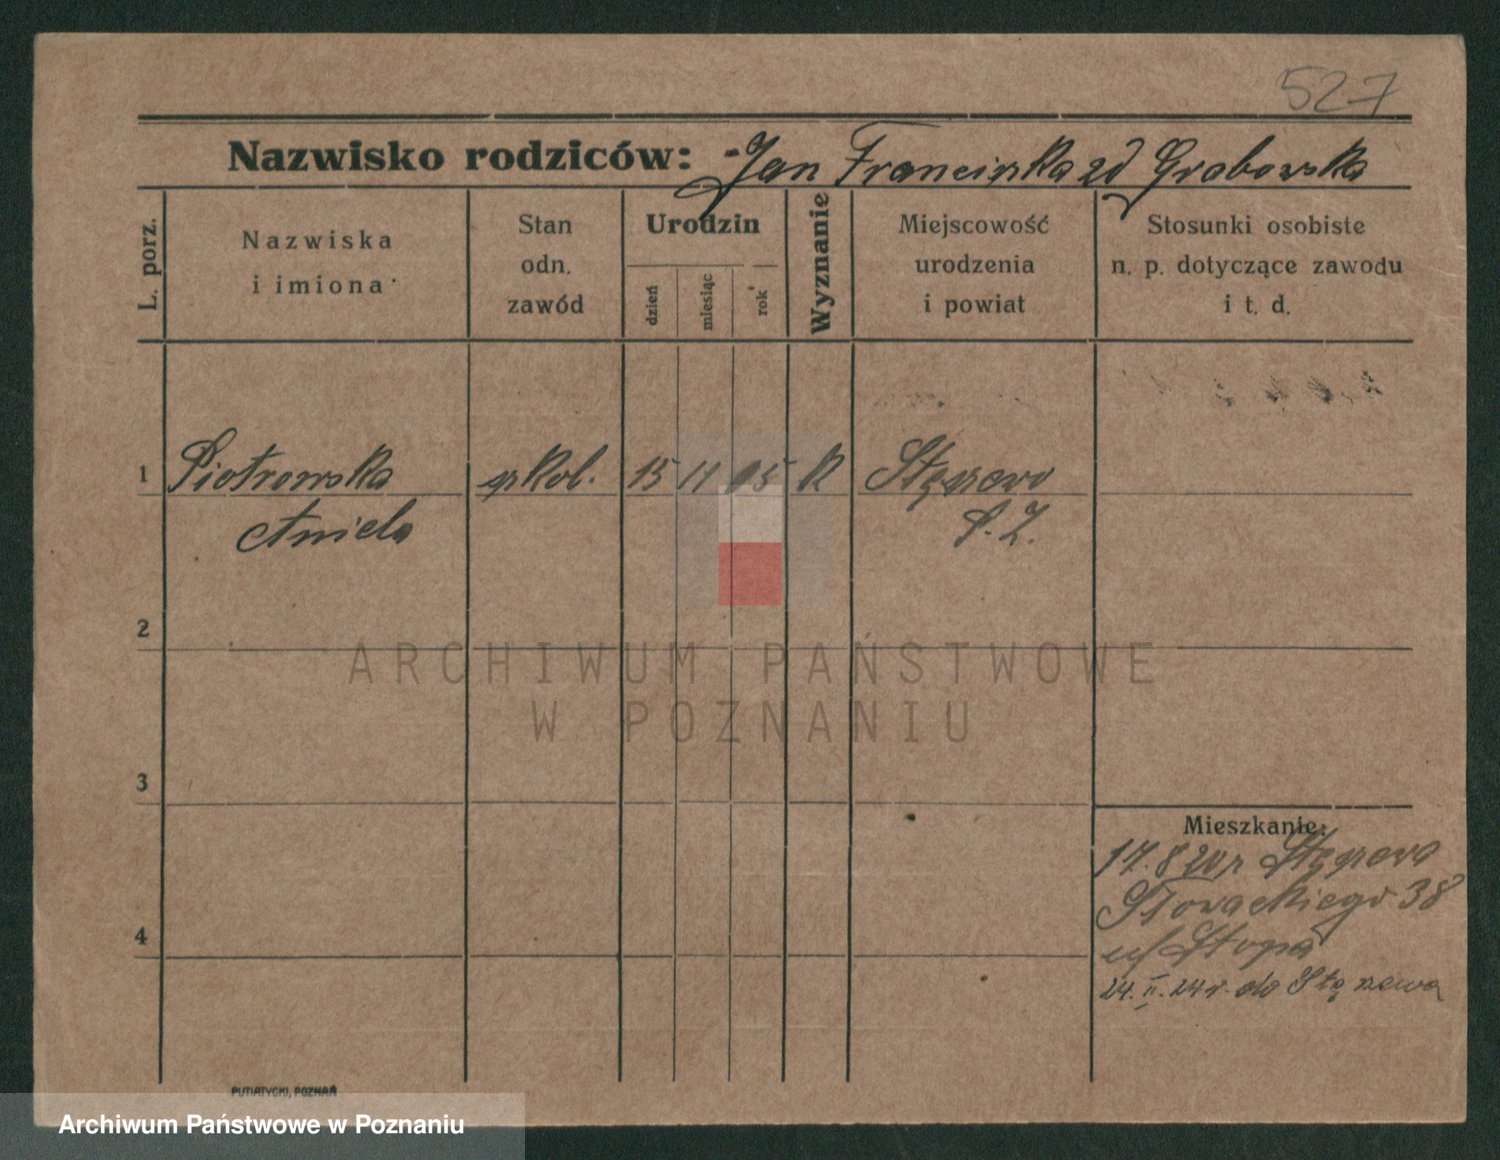 527
Nazwisko rodziców: Jan Franciszka zd Grabowska
L. porz.
Nazwiska
i imiona
Stan
odn.
zawód
Urodzin
dzień
miesiąc
rok
Wyznanie
Miejscowość
urodzenia
i powiat
Stosunki osobiste
n. p. dotyczące zawodu
i t. d.
1 Piotrowska 15 11 05 k
Aniela
2
ARCHIWUM PAŃSTWOWE
W POZNANIU
3
4
Mieszkanie:
17.8 20 r
Słowackiego 38
u/ Stopa
24. II. 24 r. do
PUTIATYCKI, POZNAŃ
Archiwum Państwowe w Poznaniu